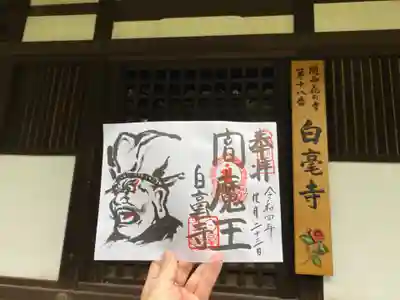 関西花の寺
第十八番
白毫寺
奉拝
令和四年
月二十三日
閻魔王
白毫寺